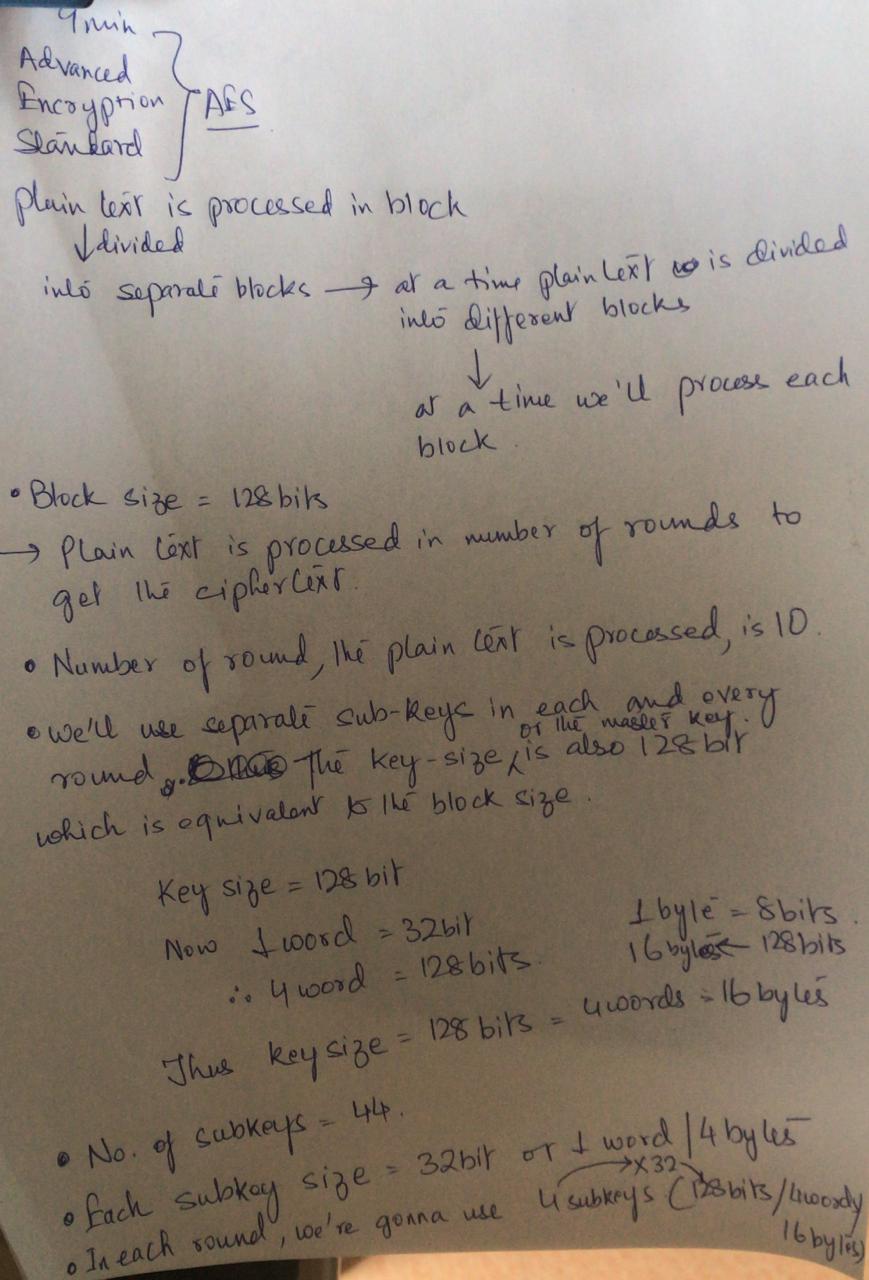 9min
Advanced
Encryption
Standard
AES
plain text is processed in block
↓ divided
into separate blocks → at a time plain text is divided
into different blocks
↓
at a time we'll process each
block.
• Block size = 128bits
→ Plain text is processed in number of rounds to
get the ciphertext.
• Number of round, the plain text is processed, is 10.
• we'll use separate sub-keys in each and every
of the master key.
round. The key-size is also 128bit
which is equivalent to the block size.
Key size = 128bit
Now 1 word = 32bit
∴ 4 word = 128bits.
1 byte = 8bits.
16bytes ← 128bits
Thus key size = 128 bits = 4words = 16bytes
• No. of subkeys = 44.
• Each subkey size = 32bit or 1 word / 4 bytes
×32
• In each round, we're gonna use 4 subkeys (128bits/4words/
16bytes)